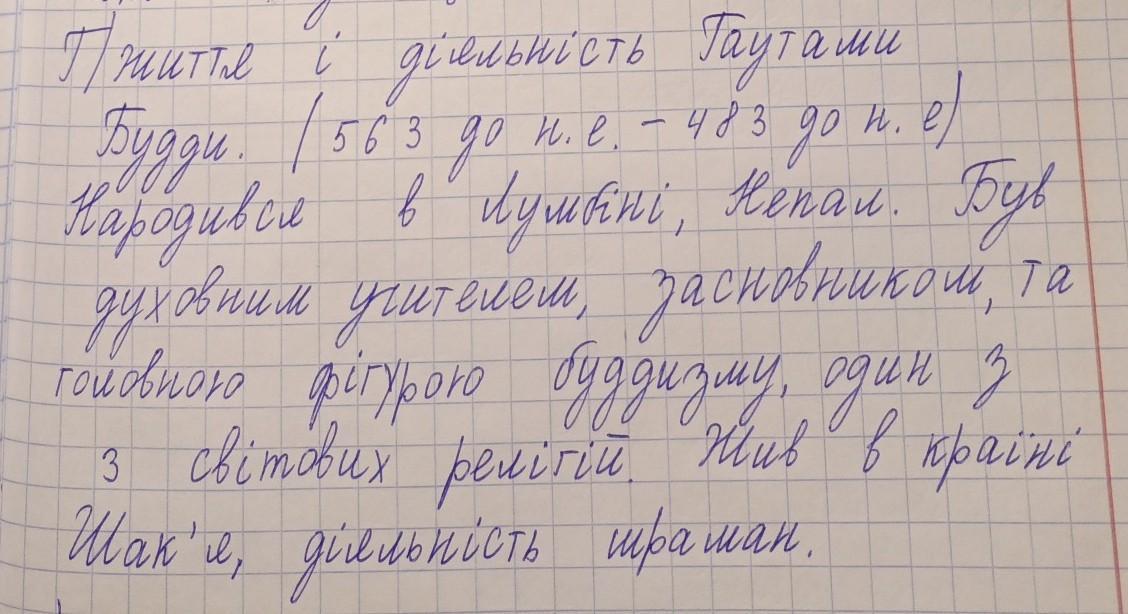 П життя і діяльність Гаутами
Будди. (563 до н.е. - 483 до н.е)
Народився в Лумбіні, Непал. Був
духовним учителем, засновником, та
головною фігурою буддизму, один з
з світових релігій. Жив в країні
Шак'я, діяльність шраман.